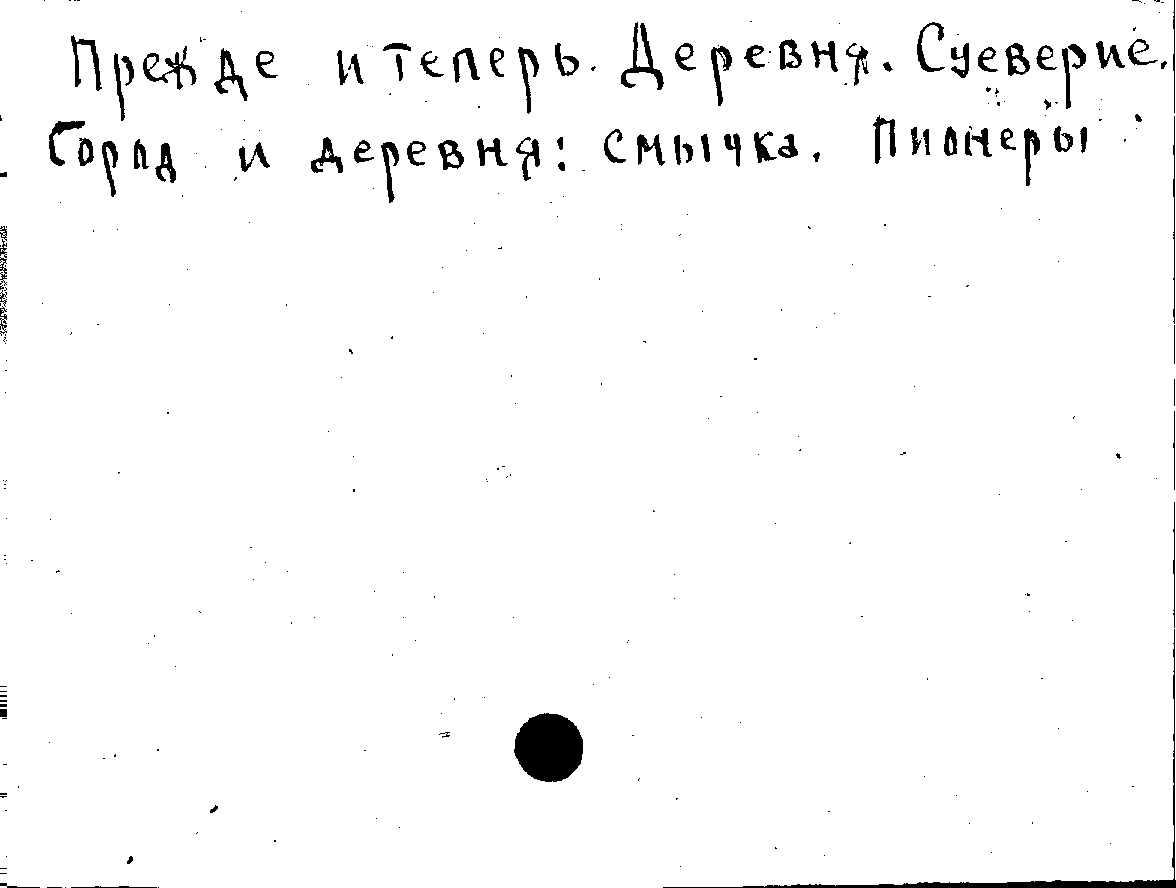 Прежде и теперь. Деревня. Суеверие.
Город и деревня: смычка. Пионеры